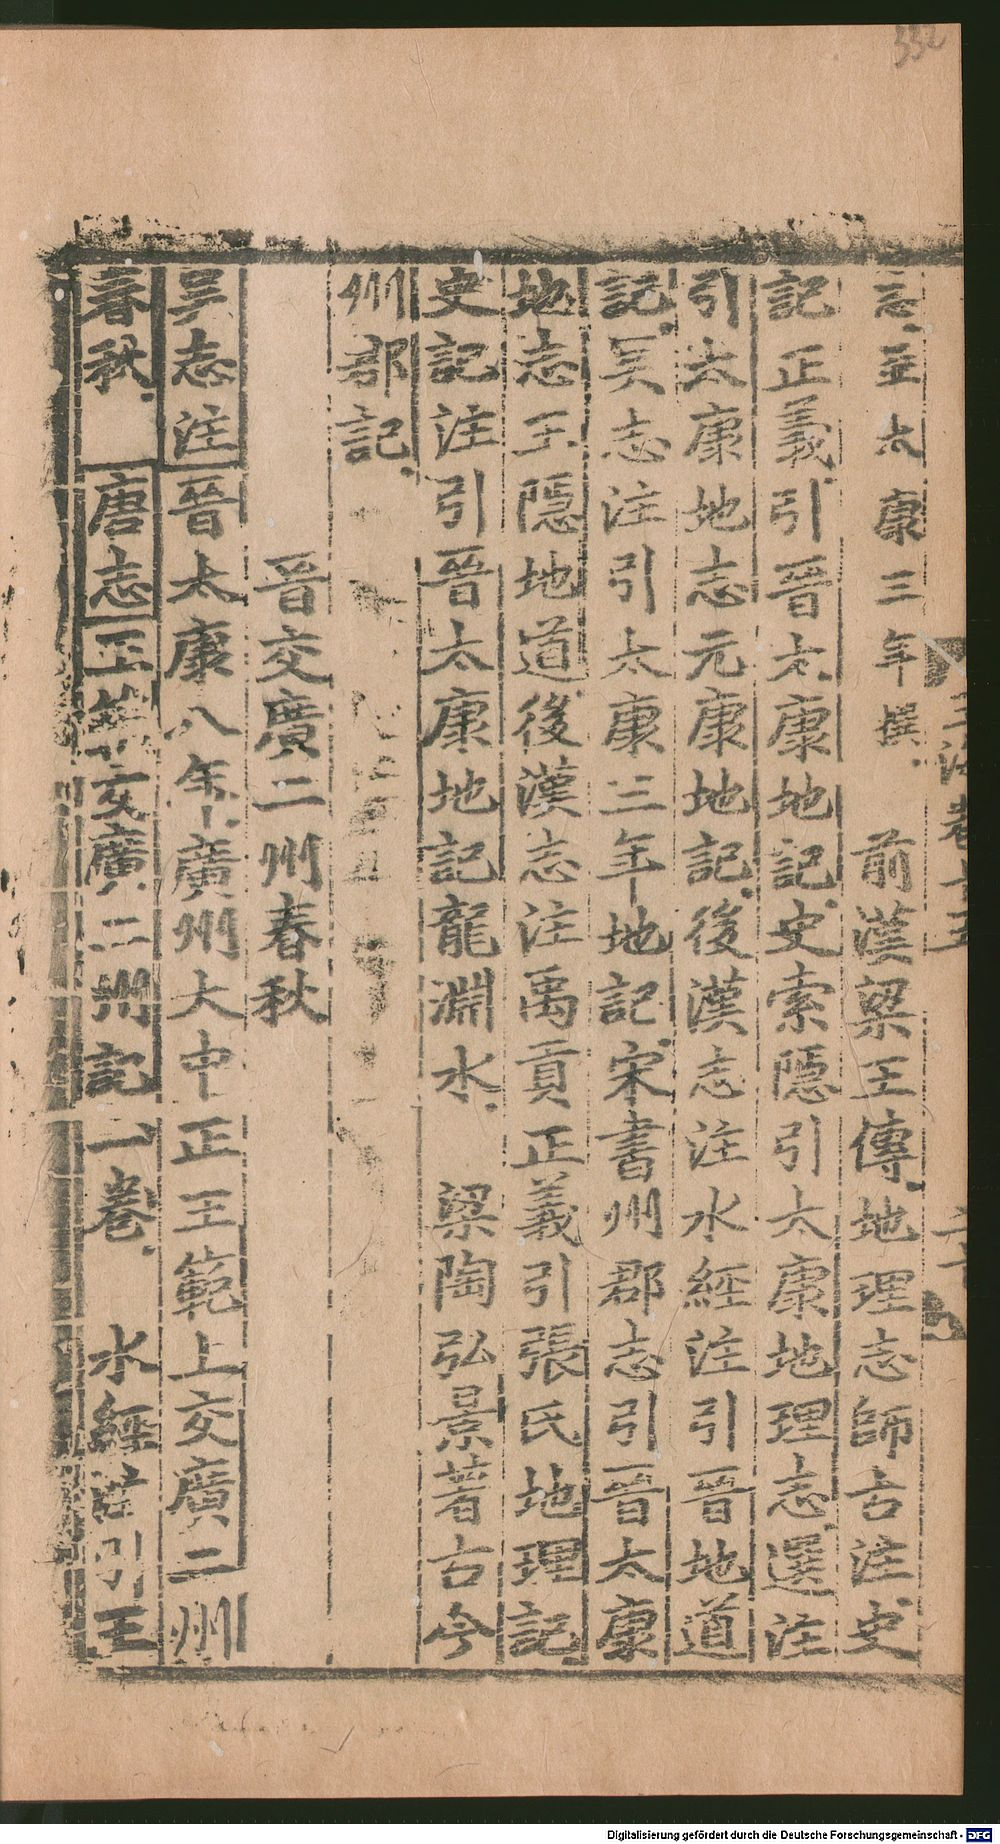 332
玉海卷十五
志並太康三年撰 前漢梁王傳地理志師古注史
記正義引晉太康地記史索隱引太康地理志選注
引太康地志元康地記後漢志注水經注引晉地道
記吳志注引太康三年地記宋書州郡志引晉太康
地志王隱地道後漢志注禹貢正義引張氏地理記
史記注引晉太康地記龍淵水 梁陶弘景著古今
州郡記
晉交廣二州春秋
吳志注晉太康八年廣州大中正王範上交廣二州
春秋 唐志王範交廣二州記一卷 水經注引王
Digitalisierung gefördert durch die Deutsche Forschungsgemeinschaft - DFG